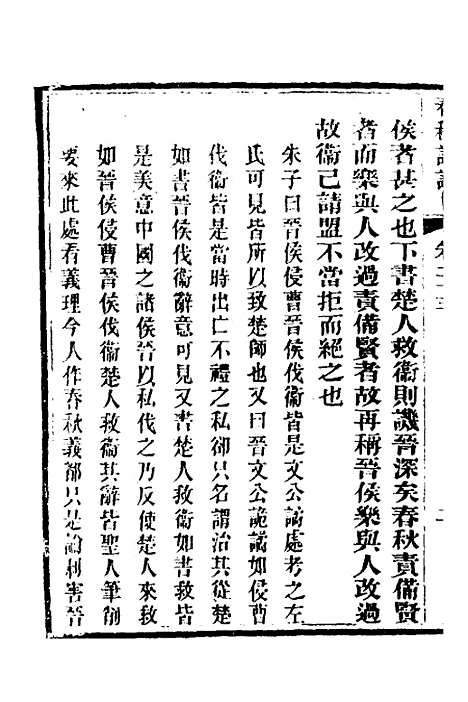 侯者甚之也下書楚人救衞則譏晉深矣春秋責備賢
者而樂與人改過責備賢者故再稱晉侯樂與人改過
故衞已請盟不當拒而絕之也
朱子曰晉侯侵曹晉侯伐衞皆是文公譎處考之左
氏可見皆所以致楚師也又曰晉文公詭譎如侵曹
伐衞皆是當時出亡不禮之私卻只名謂治其從楚
如書晉侯伐衞辭意可見又書楚人救衞如書救皆
是美意中國之諸侯晉以私伐之乃反使楚人來救
如晉侯侵曹晉侯伐衞楚人救衞其辭皆聖人筆削
要來此處看義理今人作春秋義都只是論利害晉